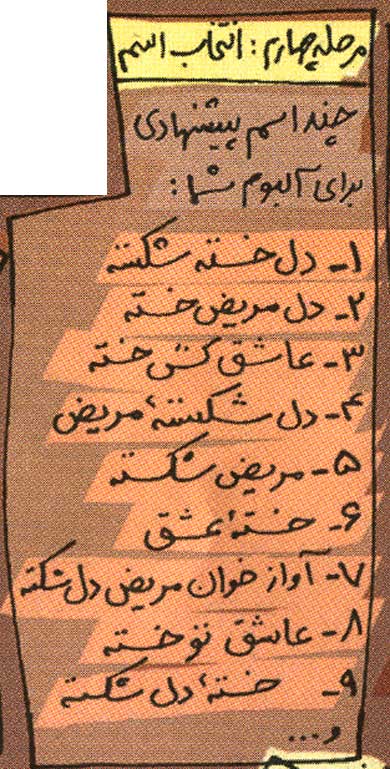 مرحله چهارم: انتخاب اسم
چند اسم پیشنهادی
برای آلبوم شما:
۱- دل خسته شکسته
۲- دل مریض خسته
۳- عاشق کش خسته
۴- دل شکستهٔ مریض
۵- مریض شکسته
۶- خستهٔ عشق
۷- آواز خوان مریض دل شکسته
۸- عاشق تو خسته
۹- خستهٔ دل شکسته
و...